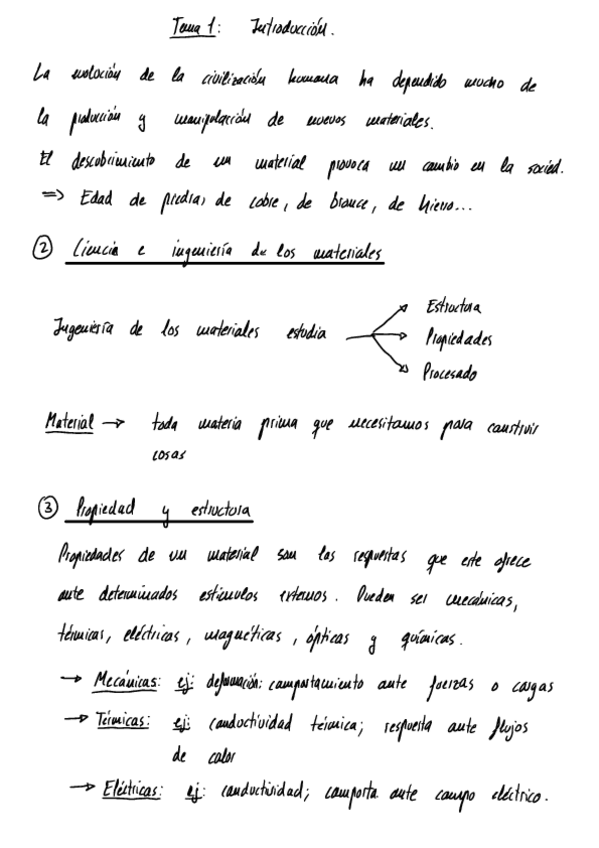 Tema 1: Introducción.
La evolución de la civilización humana ha dependido mucho de
la producción y manipulación de nuevos materiales.
El descobrimiento de un material provoca un cambio en la socied.
=> Edad de piedra, de cobre, de bronce, de hierro...
② Ciencia e ingeniería de los materiales
Ingeniería de los materiales estudia
Estructura
Propiedades
Procesado
Material → toda materia prima que necesitamos para construir
cosas
③ Propiedad y estructura
Propiedades de un material son las respuestas que este ofrece
ante determinados estímulos externos. Pueden ser mecánicas,
térmicas, eléctricas, magnéticas, ópticas y químicas.
→ Mecánicas: ej: deformación: comportamiento ante fuerzas o cargas
→ Térmicas: ej: conductividad térmica; respuesta ante flujos
de calor
→ Eléctricas: ej: conductividad; comporta ante campo eléctrico.